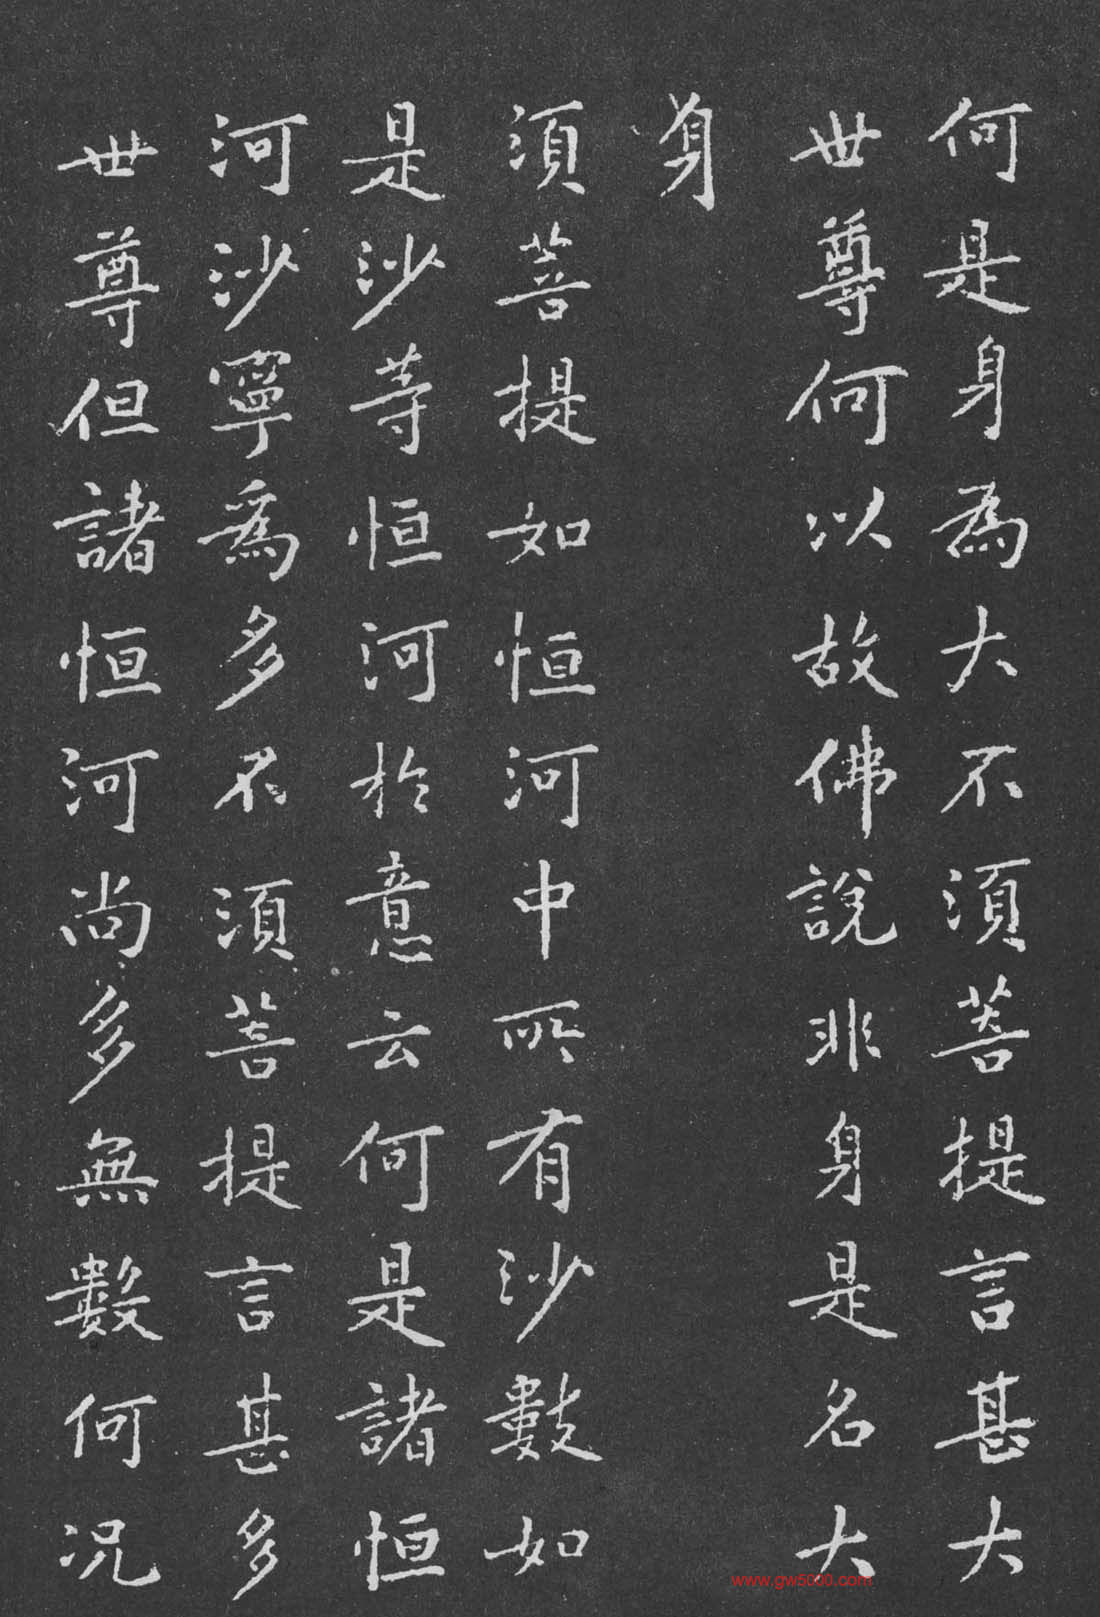 何是身為大不須菩提言甚大
世尊何以故佛說非身是名大
身
須菩提如恒河中所有沙數如
是沙等恒河於意云何是諸恒
河沙寧爲多不須菩提言甚多
世尊但諸恒河尚多無數何況
www.gw5000.com